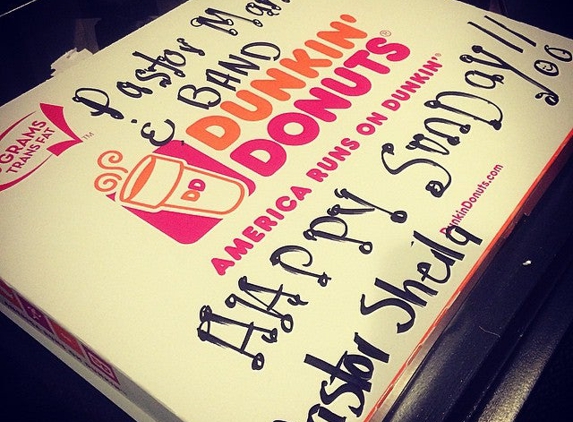 Pastor
& BAND
DUNKIN'
DONUTS®
AMERICA RUNS ON DUNKIN'®
GRAMS
TRANS FAT
TM
DD
DunkinDonuts.com
HAPPY SUNDay!!
Pastor Sheila